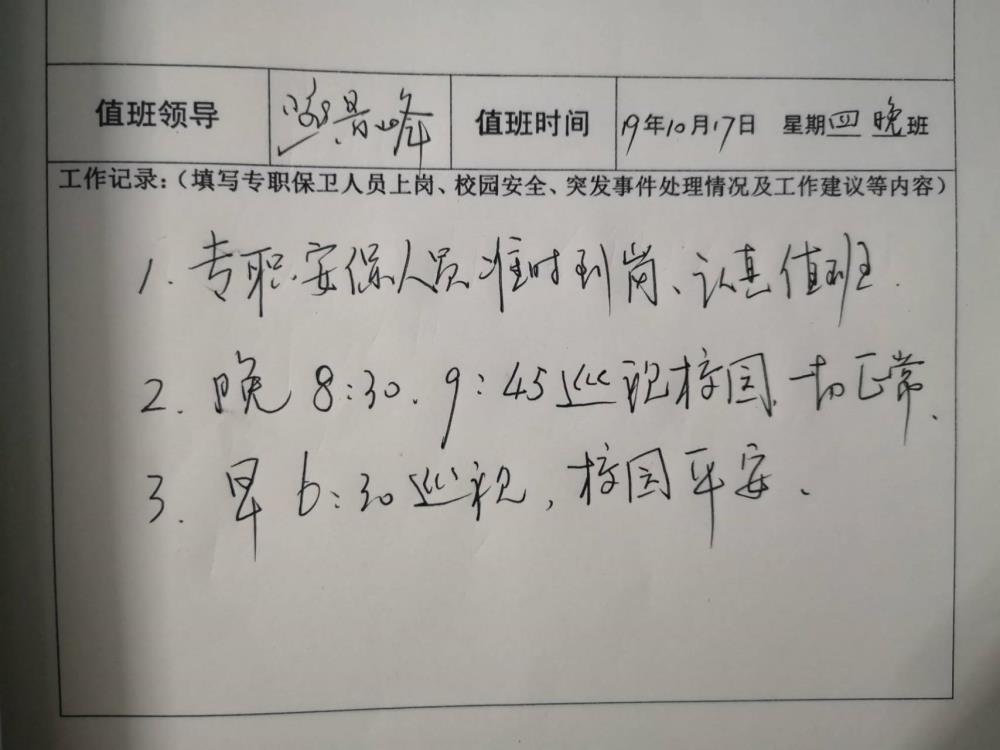 值班领导 景峰 值班时间 19年10月17日 星期四 晚班
工作记录：（填写专职保卫人员上岗、校园安全、突发事件处理情况及工作建议等内容）
1. 专职安保人员准时到岗、认真值班.
2. 晚8:30. 9:45巡视校园, 一切正常.
3. 早6:30巡视, 校园平安.